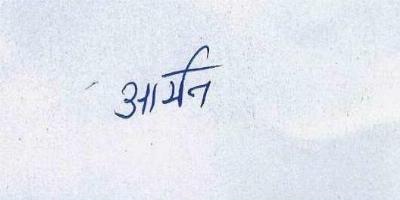 आर्यन